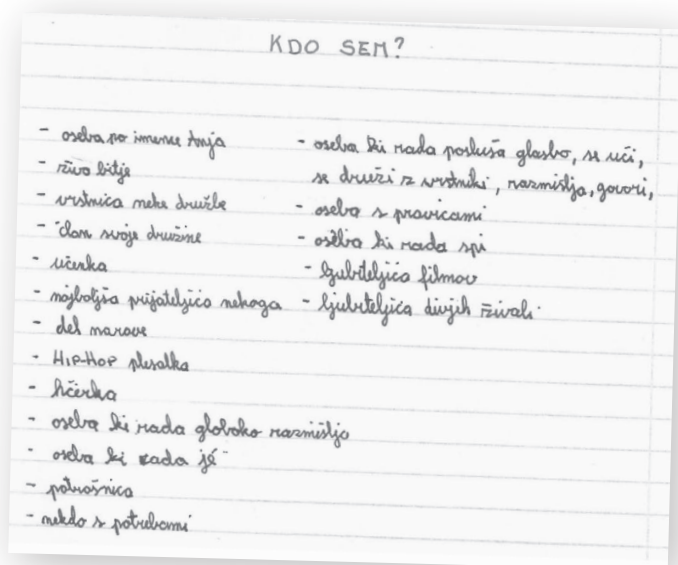 KDO SEM?
- oseba po imenu Anja
- živo bitje
- vrstnica neke družbe
- član svoje družine
- učenka
- najboljša prijateljica nekoga
- del narave
- HIP-HOP plesalka
- hčerka
- oseba ki rada globoko razmišlja
- oseba ki rada jé
- potrošnica
- nekdo s potrebami
- oseba ki rada posluša glasbo, se uči,
se druži z vrstniki, razmišlja, govori,
- oseba s pravicami
- oseba ki rada spi
- ljubiteljica filmov
- ljubiteljica divjih živali